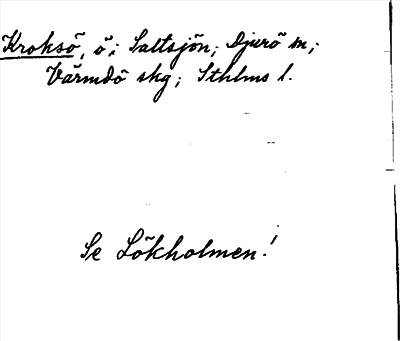 Kroksö, ö; Saltsjön; Djurö sn;
Värmdö skg; Sthlms l.
Se Lökholmen!